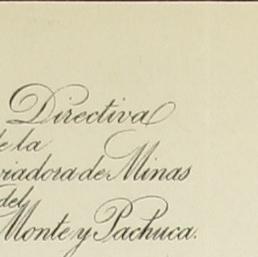 Directiva
de la
viadora de Minas
del
Monte y Pachuca.